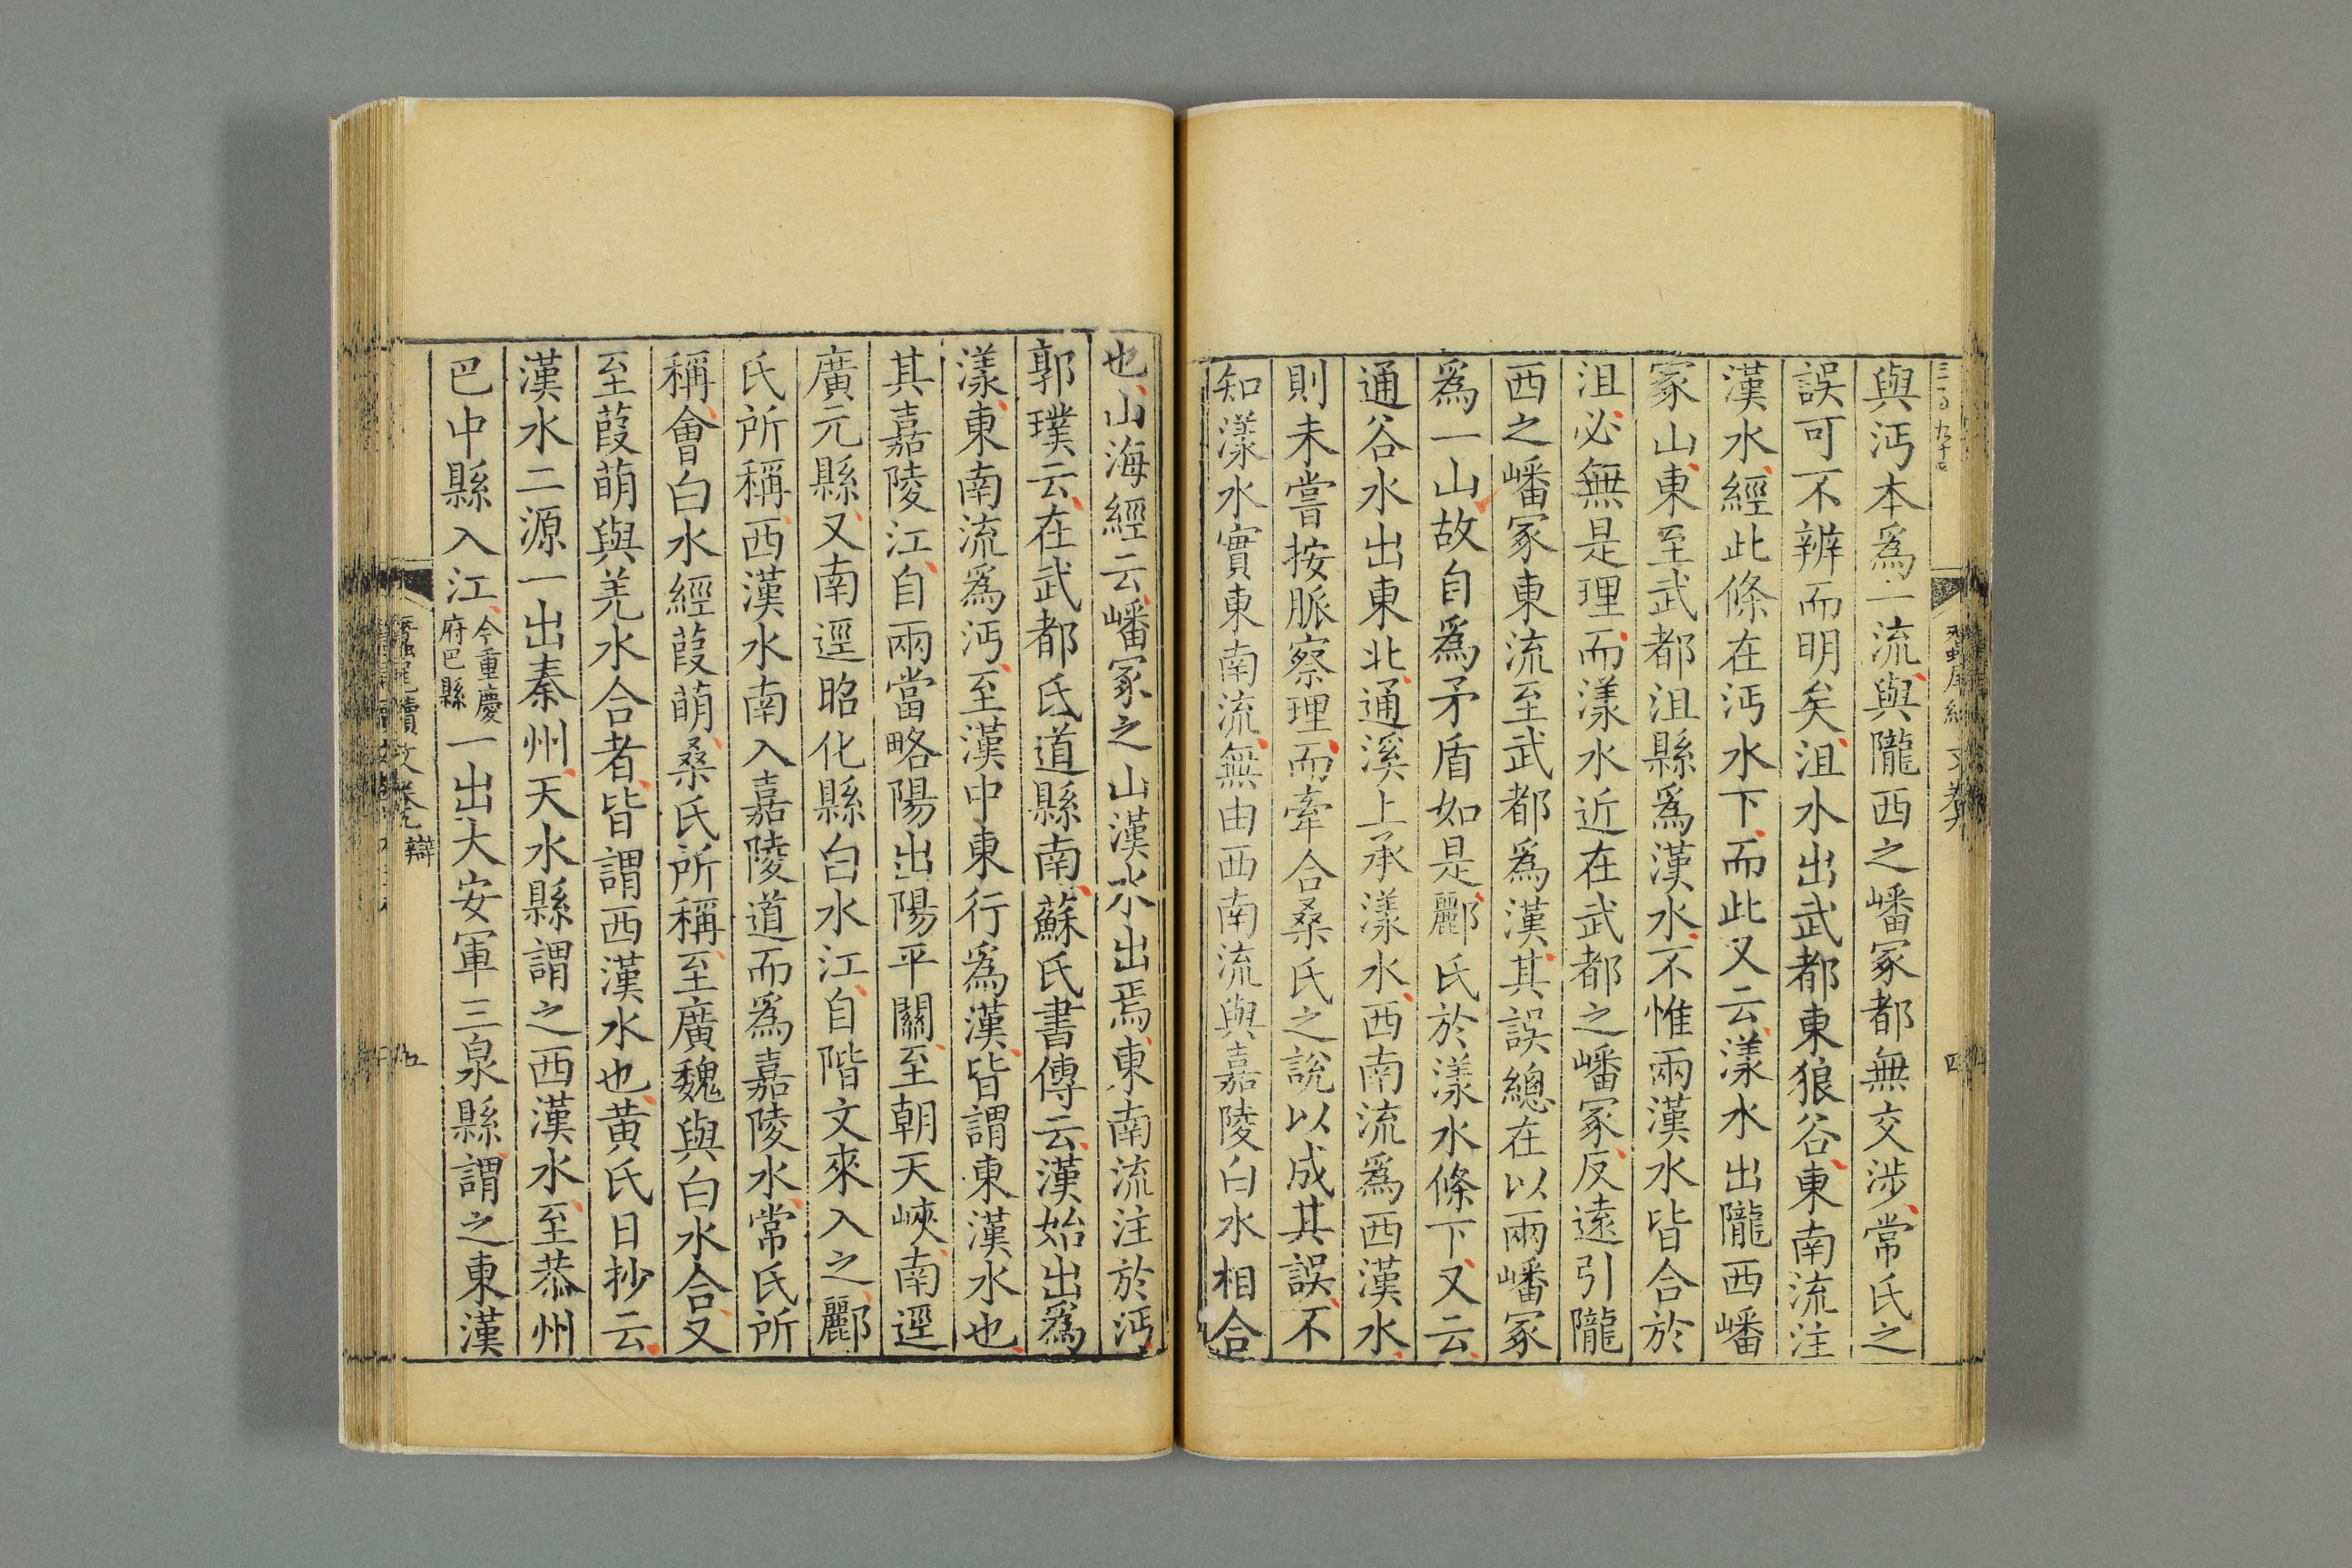 與沔本爲一流與隴西之嶓冢都無交涉常氏之
誤可不辨而明矣沮水出武都東狼谷東南流注
漢水經此條在沔水下而此又云漾水出隴西嶓
冢山東至武都沮縣爲漢水不惟兩漢水皆合於
沮必無是理而漾水近在武都之嶓冢反遠引隴
西之嶓冢東流至武都爲漢其誤總在以兩嶓冢
爲一山故自爲矛盾如是酈氏於漾水條下又云
通谷水出東北通溪上承漾水西南流爲西漢水
則未嘗按脈察理而牽合桑氏之說以成其誤不
知漾水實東南流無由西南流與嘉陵白水相合
也山海經云嶓冢之山漢水出焉東南流注於沔
郭璞云在武都氐道縣南蘇氏書傳云漢始出爲
漾東南流爲沔至漢中東行爲漢皆謂東漢水也
其嘉陵江自兩當略陽出陽平關至朝天峽南逕
廣元縣又南逕昭化縣白水江自階文來入之酈
氏所稱西漢水南入嘉陵道而爲嘉陵水常氏所
稱會白水經葭萌桑氏所稱至廣魏與白水合又
至葭萌與羌水合者皆謂西漢水也黄氏日抄云
漢水二源一出秦州天水縣謂之西漢水至恭州
巴中縣入江今重慶府巴縣一出大安軍三泉縣謂之東漢